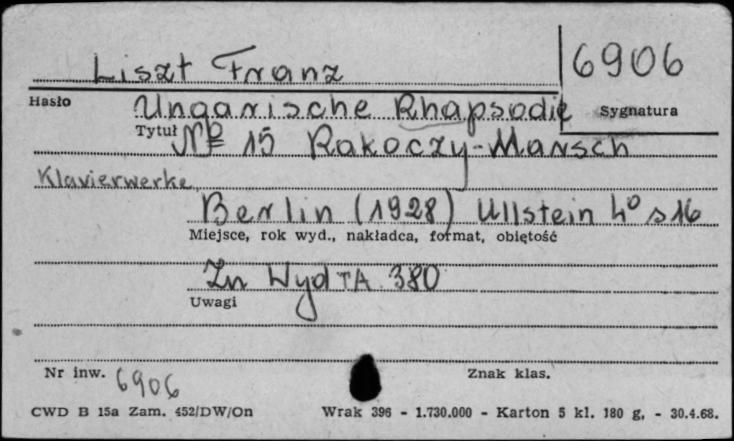 Liszt Franz
6906
Hasło
Ungarische Rhapsodie
Sygnatura
Tytuł
№ 15 Rakoczy-Marsch
Klavierwerke
Berlin (1928) Ullstein 4° s 16
Miejsce, rok wyd., nakładca, format, obiętość
Zn Wyd TA 380
Uwagi
Nr inw. 6906
Znak klas.
CWD B 15a Zam. 452/DW/On Wrak 396 - 1.730.000 - Karton 5 kl. 180 g, - 30.4.68.